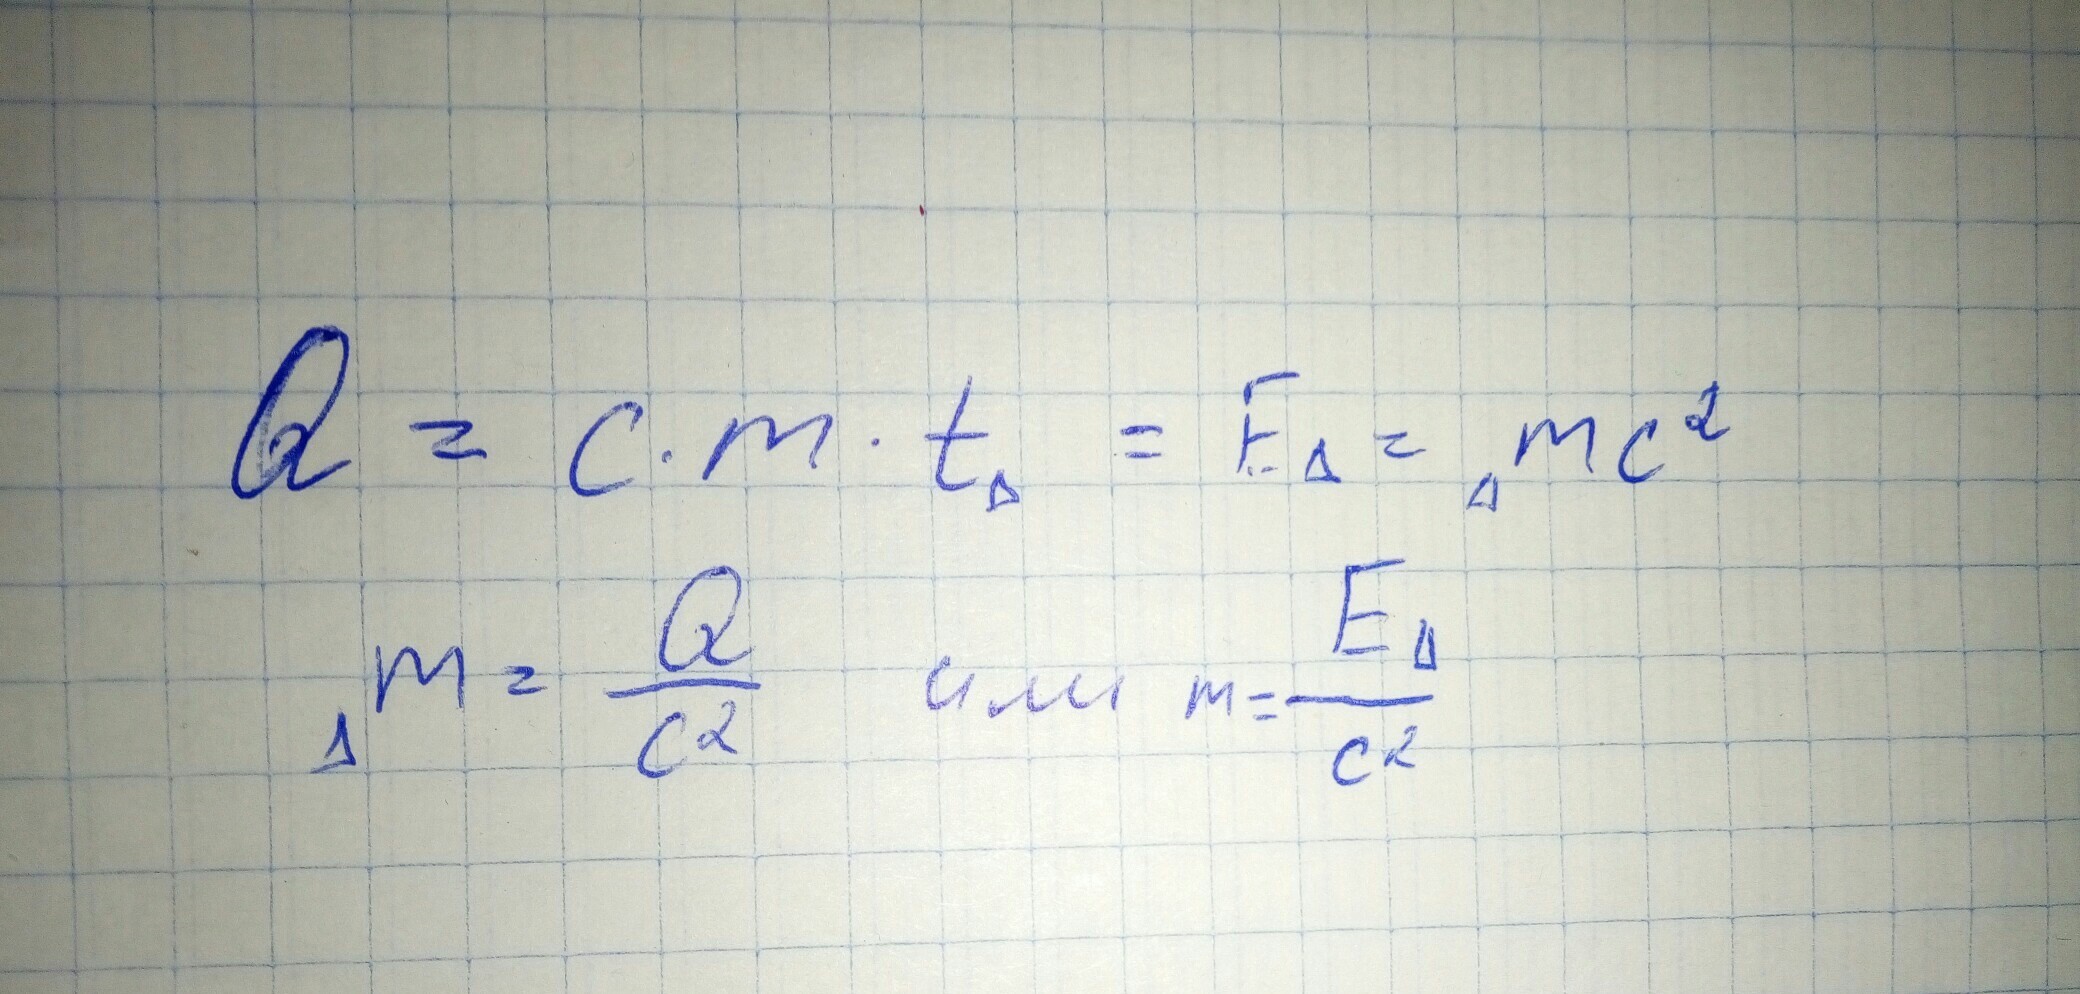 Q = c · m · t_Δ = E_Δ = _Δmc²
_Δm = Q/c² или m = E_Δ/c²